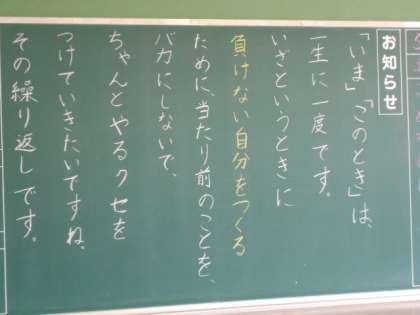 お知らせ
「いま」「このとき」は、
一生に一度です。
いざというときに
負けない自分をつくる
ために、当たり前のことを、
バカにしないで、
ちゃんとやるクセを
つけていきたいですね。
その繰り返しです。